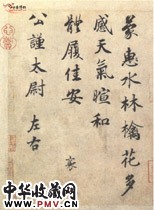 蒙惠水林檎花多
感天氣暄和
體履佳安
襄
公謹太尉左右
中华收藏网
中华收藏网
www.sc001.com.cn